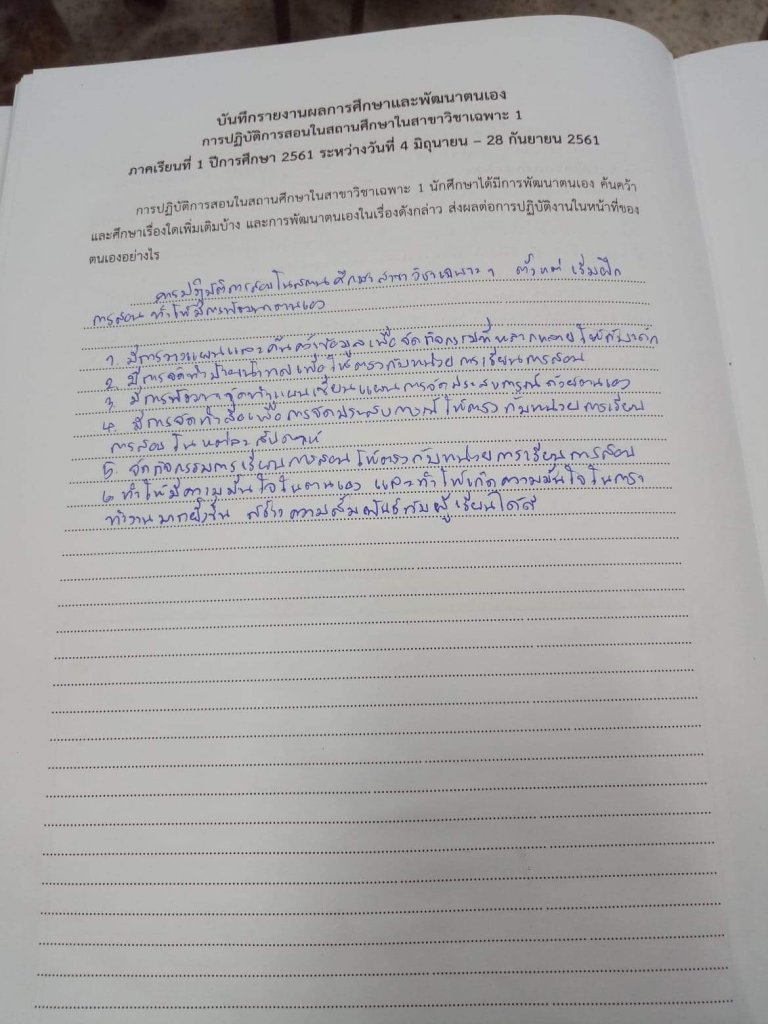 บันทึกรายงานผลการศึกษาและพัฒนาตนเอง
การปฏิบัติการสอนในสถานศึกษาในสาขาวิชาเฉพาะ 1
ภาคเรียนที่ 1 ปีการศึกษา 2561 ระหว่างวันที่ 4 มิถุนายน – 28 กันยายน 2561
การปฏิบัติการสอนในสถานศึกษาในสาขาวิชาเฉพาะ 1 นักศึกษาได้มีการพัฒนาตนเอง ค้นคว้า
และศึกษาเรื่องใดเพิ่มเติมบ้าง และการพัฒนาตนเองในเรื่องดังกล่าว ส่งผลต่อการปฏิบัติงานในหน้าที่ของ
ตนเองอย่างไร
การปฏิบัติการสอนในสถานศึกษาสาขาวิชาเฉพาะ 1 ตั้งแต่ เริ่มฝึก
การสอน ทำให้มีการพัฒนาตนเอง
1. มีการวางแผนและค้นคว้าข้อมูลเพื่อจัดกิจกรรมที่หลากหลายให้กับเด็ก
2. มีการจัดทำป้ายนำทางเพื่อให้ตรงกับหน่วยการเรียนการสอน
3. มีการพัฒนาจัดทำแผนเขียนแผนการจัดประสบการณ์ด้วยตนเอง
4. มีการจัดทำสื่อเพื่อการจัดประสบการณ์ให้ตรงกับหน่วยการเรียน
การสอนในแต่ละสัปดาห์
5. จัดกิจกรรมการเรียนการสอนให้ตรงกับหน่วยการเรียนการสอน
6 ทำให้มีความมั่นใจในตนเอง และทำให้เกิดความมั่นใจในการ
ทำงานมากยิ่งขึ้น สร้างความสัมพันธ์กับผู้เรียนได้ดี